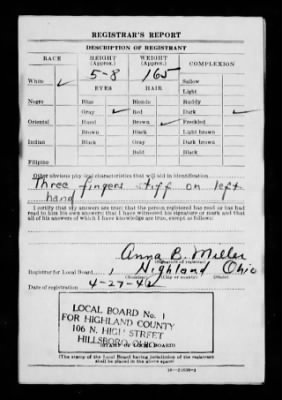 REGISTRAR'S REPORT
DESCRIPTION OF REGISTRANT
RACE HEIGHT (Approx.) WEIGHT (Approx.) COMPLEXION
5-8 165
White ✓ EYES HAIR Sallow
Light
Negro Blue Blonde Ruddy
Gray ✓ Red Dark ✓
Oriental Hazel Brown ✓ Freckled
Brown Black Light brown
Indian Black Gray Dark brown
Bald Black
Filipino
Other obvious physical characteristics that will aid in identification
Three fingers stiff on left
hand
I certify that my answers are true; that the person registered has read or has had
read to him his own answers; that I have witnessed his signature or mark and that
all of his answers of which I have knowledge are true, except as follows:
Anna B. Miller
(Signature of registrar)
Registrar for Local Board 1 Highland Ohio
(Number) (City or county) (State)
Date of registration 4-27-42
LOCAL BOARD No. 1
FOR HIGHLAND COUNTY
106 N. HIGH STREET
HILLSBORO, OHIO
(STAMP OF LOCAL BOARD)
(The stamp of the Local Board having jurisdiction of the registrant
shall be placed in the above space)